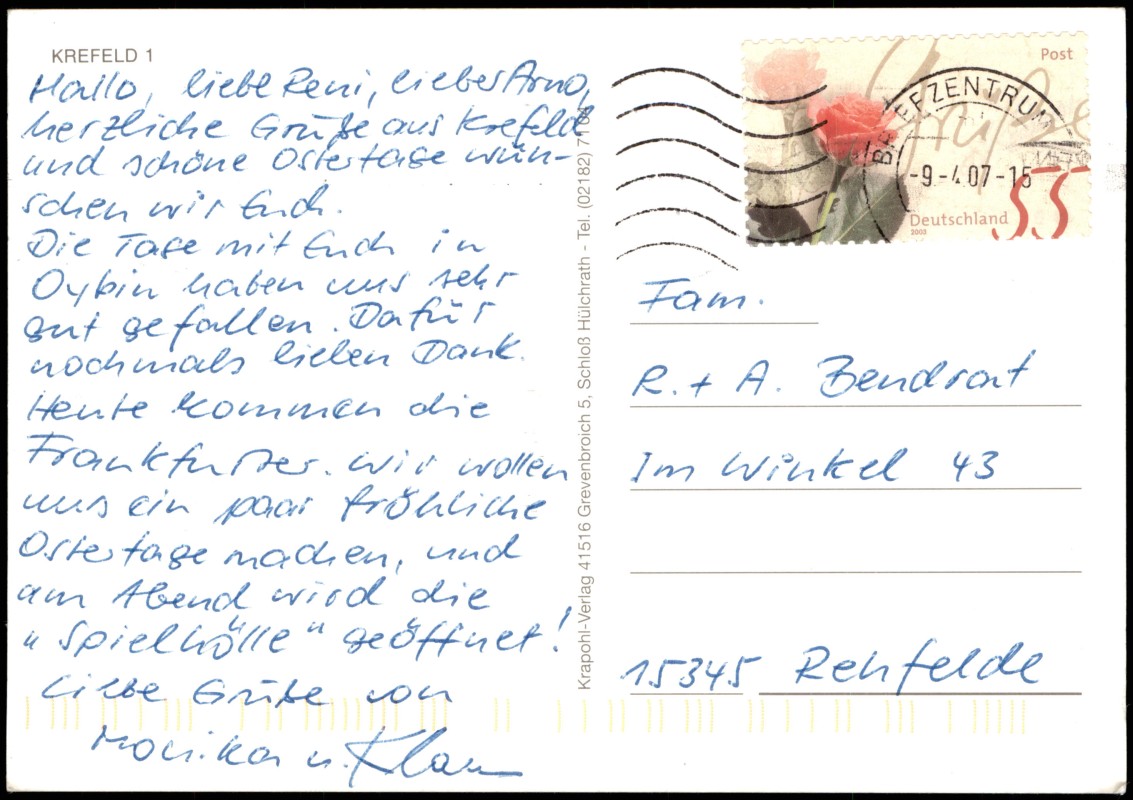 KREFELD 1
Hallo, liebe Reni, lieber Arno,
herzliche Grüße aus Krefeld
und schöne Ostertage wün-
schen wir Euch.
Die Tage mit Euch in
Oybin haben uns sehr
gut gefallen. Dafür
nochmals lieben Dank.
Heute kommen die
Frankfurter. Wir wollen
uns ein paar fröhliche
Ostertage machen, und
am Abend wird die
„Spielhölle" geöffnet!
Liebe Grüße von
Monika u. Klaus
Krapohl-Verlag 41516 Grevenbroich 5, Schloß Hülchrath - Tel. (02182) 7
Post
Grüße
BRIEFZENTRUM
-9.-4.07-15
Deutschland 55
2003
Fam.
R. + A. Bendrat
Im Winkel 43
15345 Rehfelde